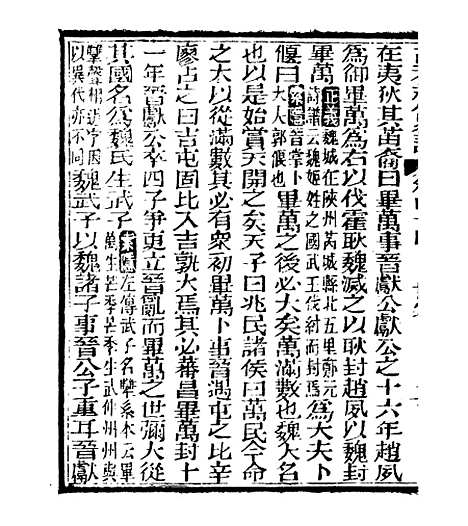 在夷狄其苗裔曰畢萬事晉獻公獻公之十六年趙夙
為御畢萬為右以伐霍耿魏滅之以耿封趙夙以魏封
畢萬正義魏城在陝州芮城縣北五里鄭元詩譜云魏姬姓之國武王伐紂而封焉為大夫卜
偃曰索隱晉掌卜大人郭偃也畢萬之後必大矣萬滿數也魏大名
也以是始賞天開之矣天子曰兆民諸侯曰萬民今命
之大以從滿數其必有衆初畢萬卜事晉遇屯之比辛
廖占之曰吉屯固比入吉孰大焉其必蕃昌畢萬封十
一年晉獻公卒四子爭更立晉亂而畢萬之世彌大從
其國名為魏氏生武子索隱左傳武子名犨系本云畢萬生芒季芒季生武仲州州與
犨聲相近字因以異代亦不同魏武子以魏諸子事晉公子重耳晉獻